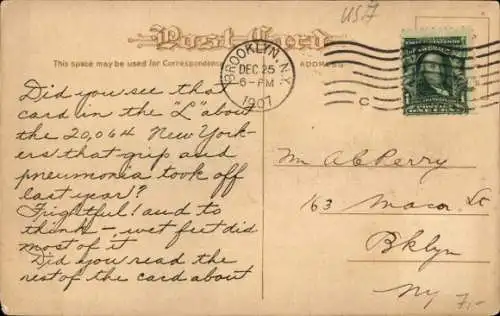 US7
Post Card
This space may be used for Correspondence
ADDRESS
BROOKLYN, N.Y.
DEC 25
6-PM
1907
C
Did you see that
card in the "L" about
the 20,064 New York-
ers that grip and
pneumonia took off
last year?
Frightful! and to
think -, wet feet did
most of it
Did you read the
rest of the card about
Perry
163 Macon St
Bklyn
NY
7,-